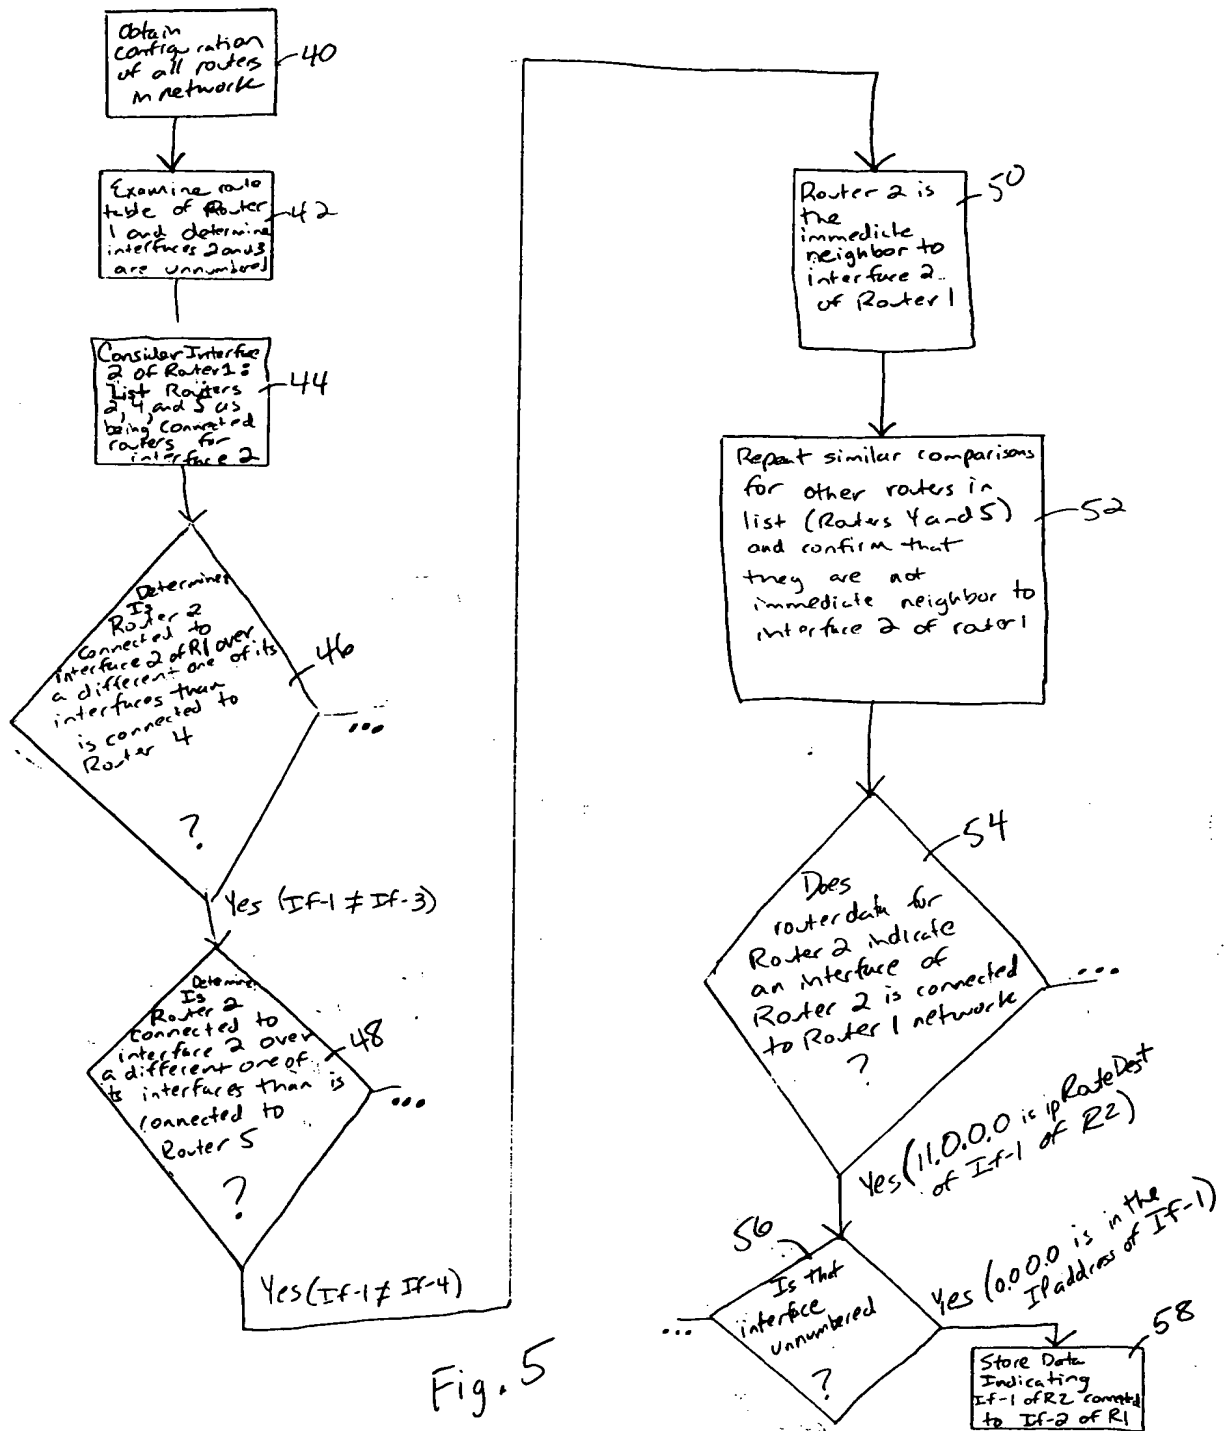 Obtain
configuration
of all routers
in network
40
Examine route
table of Router
1 and determine
interfaces 2 and 3
are unnumbered
42
Consider Interface
2 of Router 1:
List Routers
2, 4, and 5 as
being connected
routers for
interface 2
44
Determine
Is
Router 2
connected to
interface 2 of R1 over
a different one of its
interfaces than
is connected to
Router 4
?
46
...
Yes (If-1 ≠ If-3)
Determine
Is
Router 2
connected to
interface 2 over
a different one of
its interfaces than is
connected to
Router 5
?
48
...
Yes (If-1 ≠ If-4)
Router 2 is
the
immediate
neighbor to
interface 2
of Router 1
50
Repeat similar comparisons
for other routers in
list (Routers 4 and 5)
and confirm that
they are not
immediate neighbor to
interface 2 of router 1
52
Does
router data for
Router 2 indicate
an interface of
Router 2 is connected
to Router 1 network
?
54
...
Yes (11.0.0.0 is ipRouteDest
of If-1 of R2)
56
Is that
interface
unnumbered
?
...
Yes (0.0.0.0 is in the
IP address of If-1)
58
Store Data
Indicating
If-1 of R2 connected
to If-2 of R1
Fig. 5